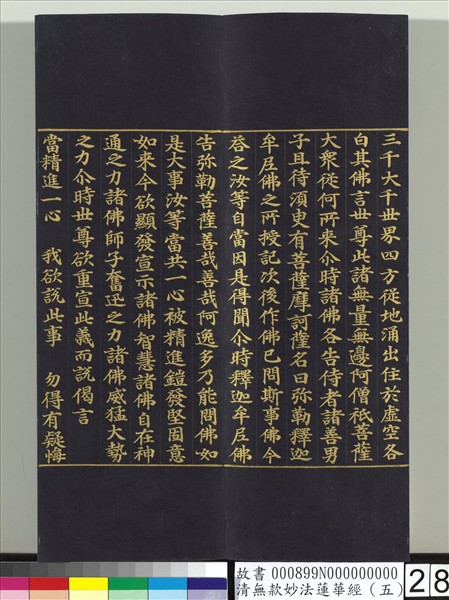 三千大千世界四方從地涌出住於虛空各
白其佛言世尊此諸無量無邊阿僧祇菩薩
大衆從何所來尒時諸佛各告侍者諸善男
子且待須臾有菩薩摩訶薩名曰弥勒釋迦
牟尼佛之所授記次後作佛已問斯事佛今
荅之汝等自當因是得聞尒時釋迦牟尼佛
告弥勒菩薩善哉善哉阿逸多乃能問佛如
是大事汝等當共一心被精進鎧發堅固意
如來今欲顯發宣示諸佛智慧諸佛自在神
通之力諸佛師子奮迅之力諸佛威猛大勢
之力尒時世尊欲重宣此義而說偈言
當精進一心 我欲說此事 勿得有疑悔
故書 000899N000000000
清無款妙法蓮華經（五）
28